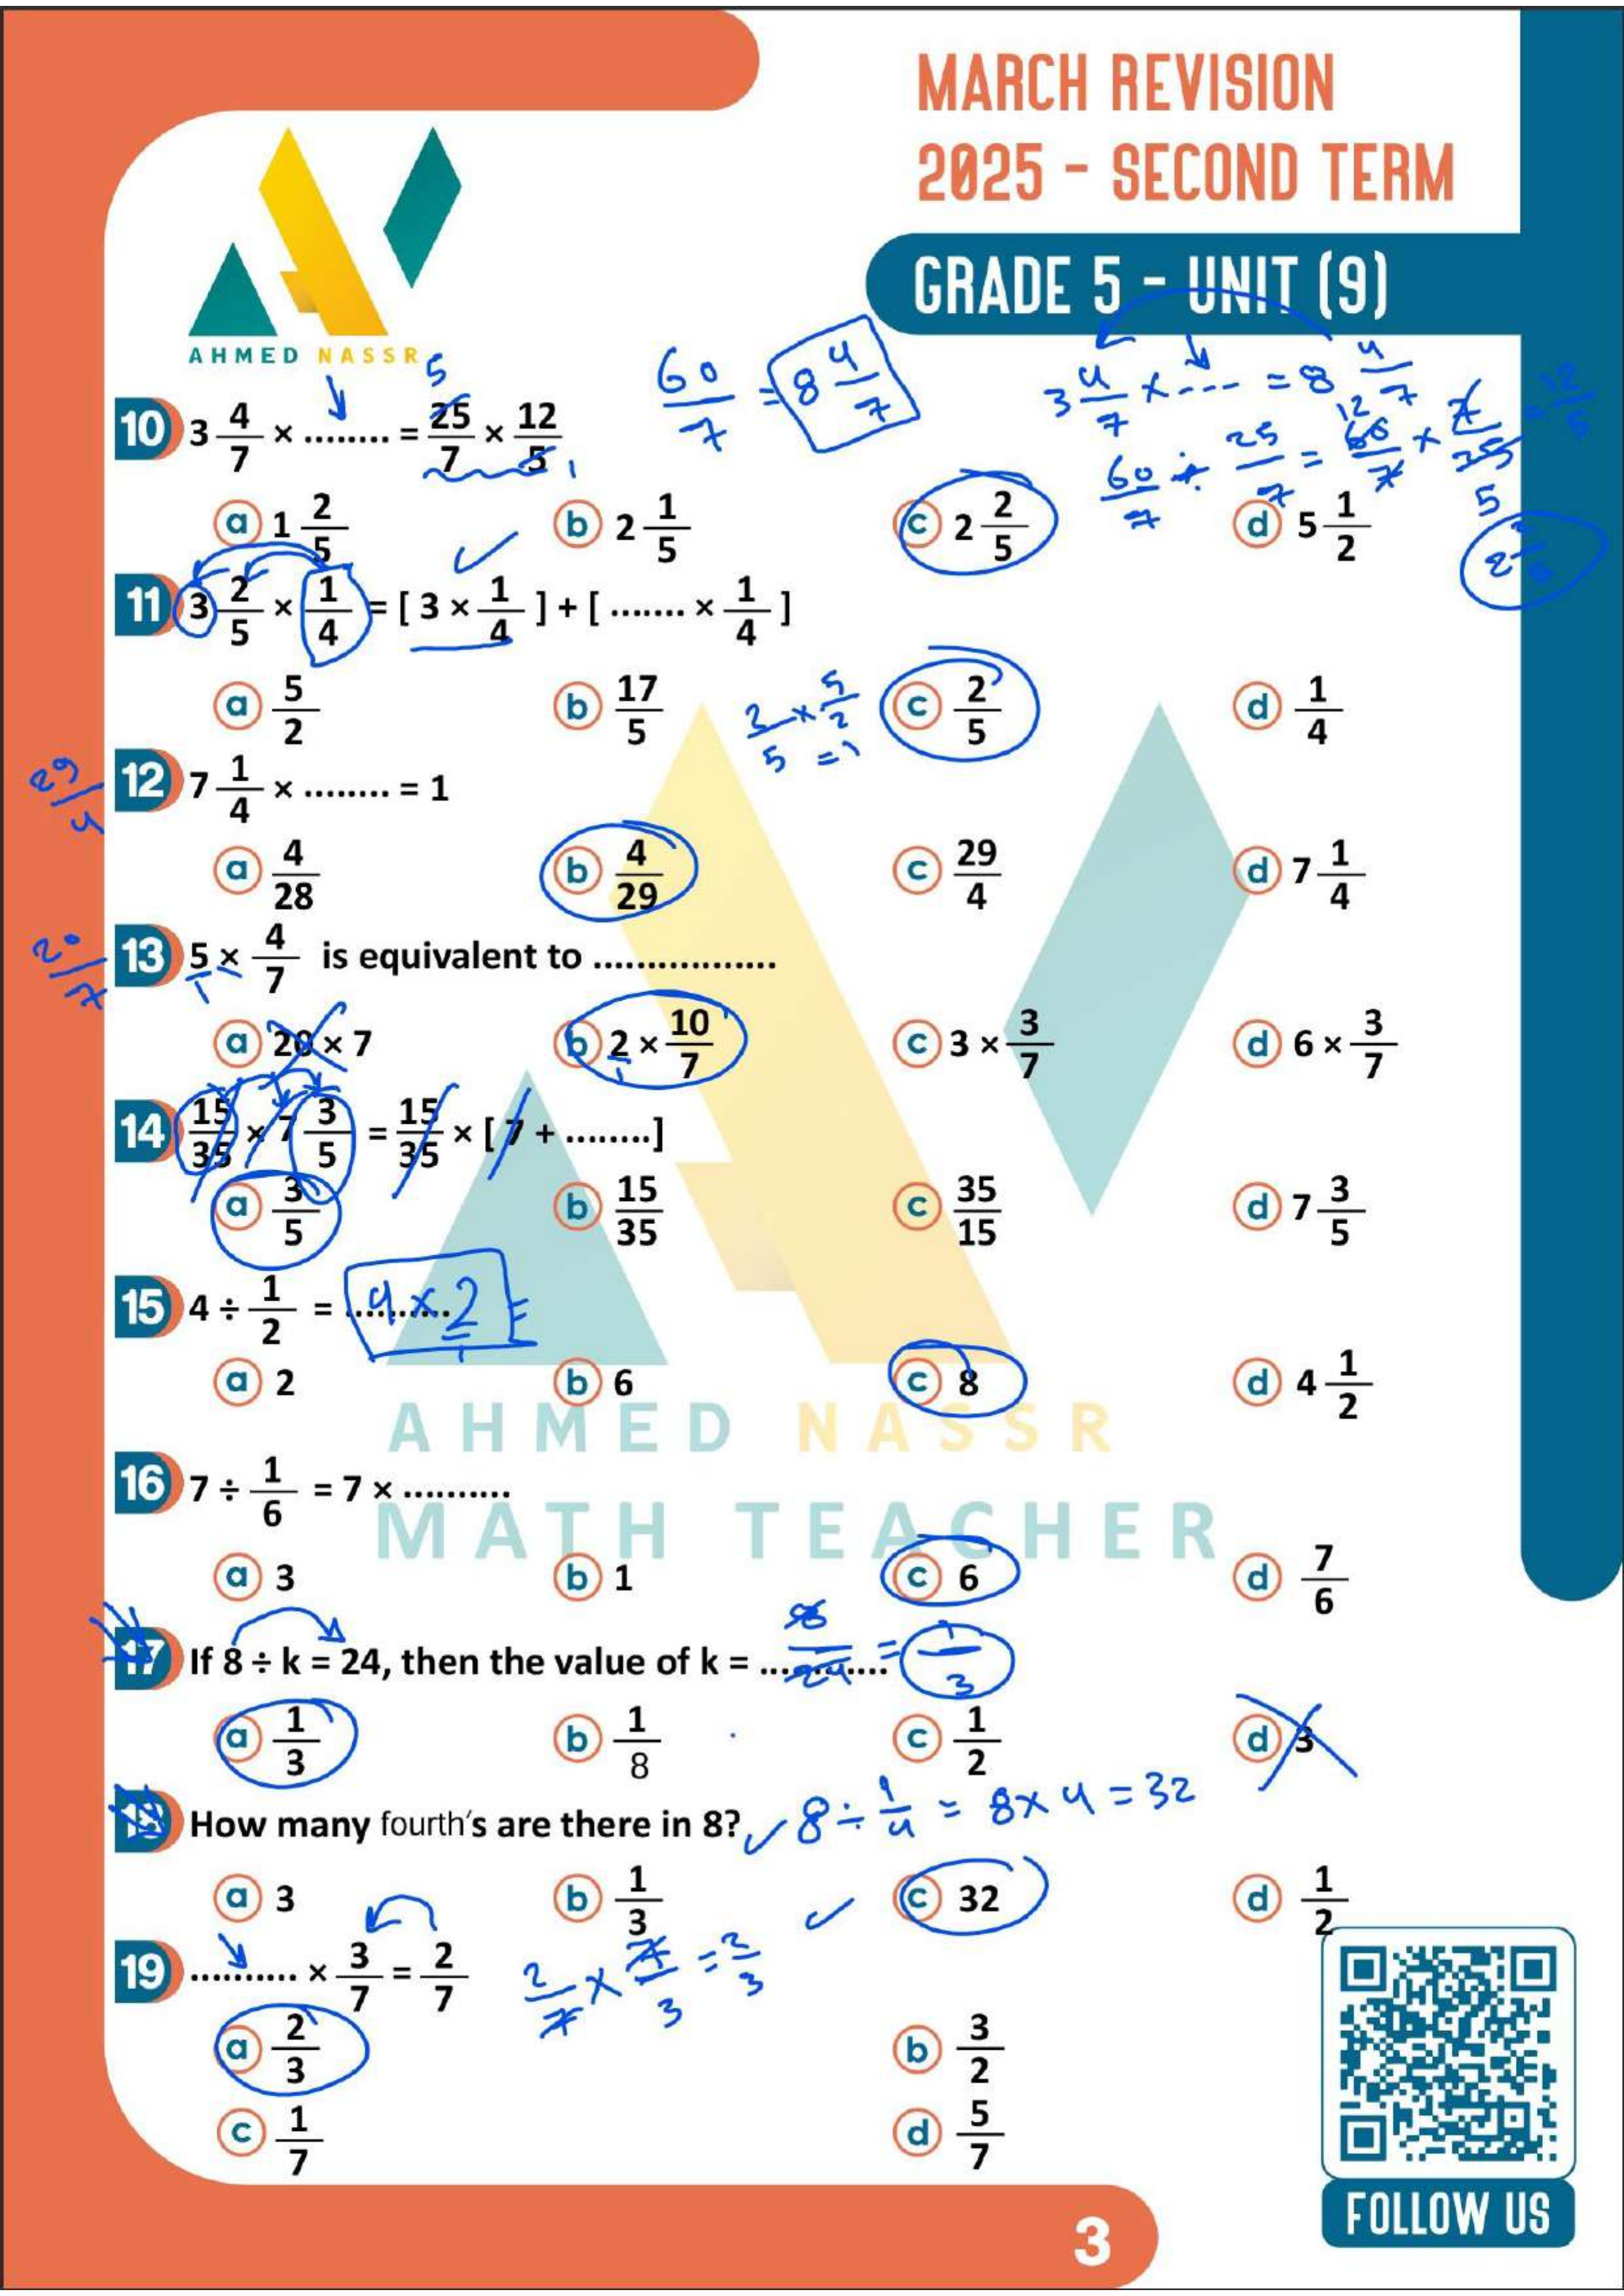 MARCH REVISION
2025 - SECOND TERM
GRADE 5 - UNIT (9)
AHMED NASSR
60/7 = 8 4/7
3 4/7 × --- = 8 4/7
60/7 ÷ 25/7 = 60/7 × 7/35 = 12/5
12
5
5
1
10 3 4/7 × ........ = 25/7 × 12/5
a 1 2/5 b 2 1/5 c 2 2/5 d 5 1/2
11 3 2/5 × 1/4 = [ 3 × 1/4 ] + [ ....... × 1/4 ]
a 5/2 b 17/5 c 2/5 d 1/4
2/5 × 5/2 = 1
29/4
12 7 1/4 × ........ = 1
a 4/28 b 4/29 c 29/4 d 7 1/4
20/7
13 5 × 4/7 is equivalent to .................
1
a 20 × 7 b 2 × 10/7 c 3 × 3/7 d 6 × 3/7
1
14 15/35 × 7 3/5 = 15/35 × [ 7 + ........]
a 3/5 b 15/35 c 35/15 d 7 3/5
15 4 ÷ 1/2 = .......... 4 × 2/1 =
a 2 b 6 c 8 d 4 1/2
AHMED NASSR
16 7 ÷ 1/6 = 7 × ..........
MATH TEACHER
a 3 b 1 c 6 d 7/6
17 If 8 ÷ k = 24, then the value of k = ............ 8/24 = 1/3
a 1/3 b 1/8 c 1/2 d 3
18 How many fourth's are there in 8? 8 ÷ 1/4 = 8 × 4 = 32
a 3 b 1/3 c 32 d 1/2
19 .......... × 3/7 = 2/7 2/7 × 7/3 = 2/3
a 2/3 b 3/2
c 1/7 d 5/7
FOLLOW US
3